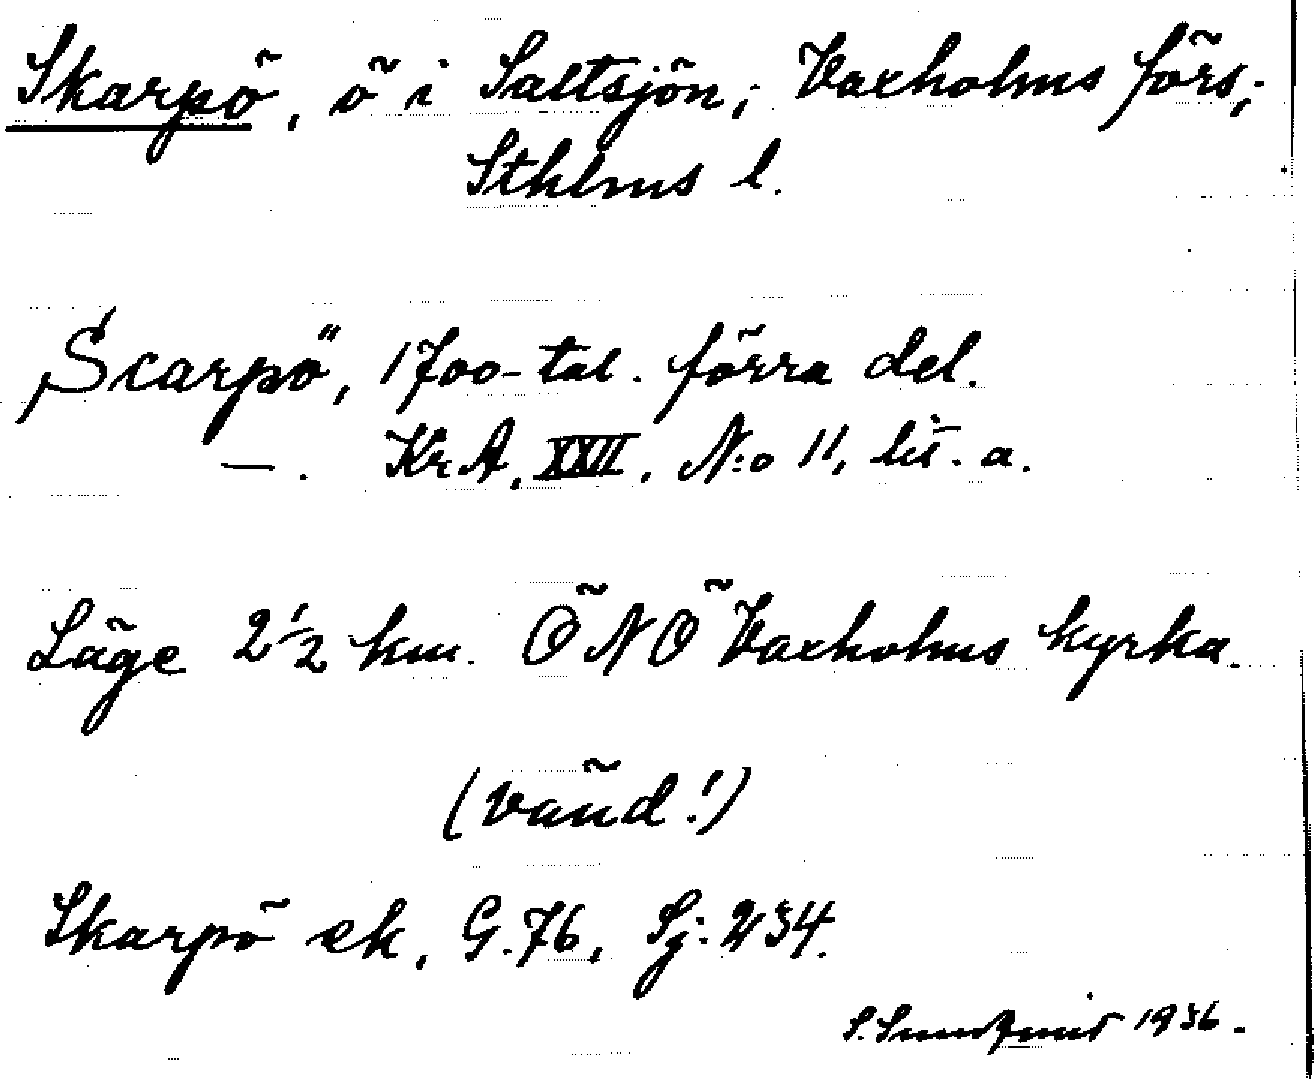 Skarpö, ö i Saltsjön; Vaxholms förs.;
Sthlms l.
„Scarpö", 1700-tal. förra del.
—. KrA. XXII. N:o 11, lit. a.
Läge 2½ km. ÖNÖ Vaxholms kyrka.
(vänd!)
Skarpö ek, G. 76, Sj: 234.
S. Sundquist 1936.